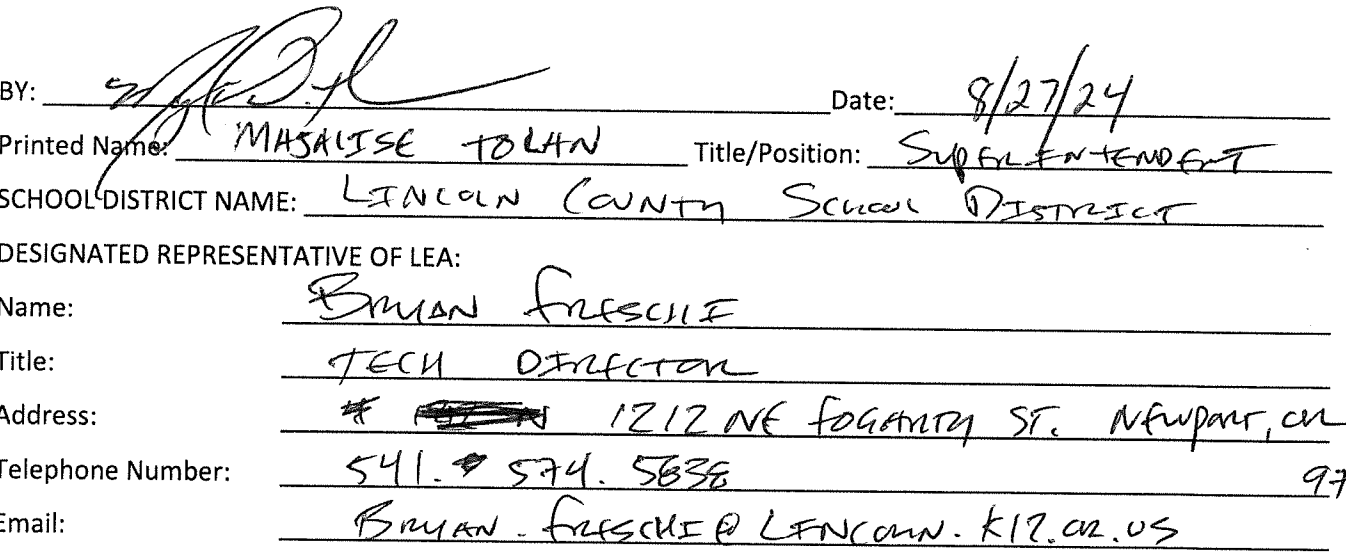 BY: Date: 8/27/24
Printed Name: MAJALISE TOLAN Title/Position: SUPERINTENDENT
SCHOOL DISTRICT NAME: LINCOLN COUNTY SCHOOL DISTRICT
DESIGNATED REPRESENTATIVE OF LEA:
Name: BRYAN FRESCHI
Title: TECH DIRECTOR
Address: 1212 NE FOGARTY ST. NEWPORT, OR
Telephone Number: 541. 574. 5638 97
Email: BRYAN.FRESCHI@LINCOLN.K12.OR.US